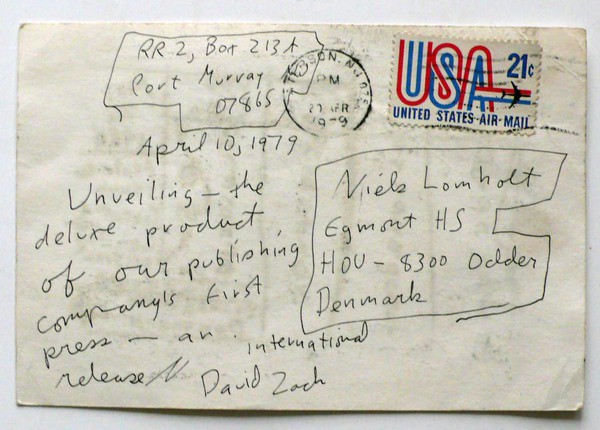 RR 2, Box 213A
Port Murray
07865
April 10, 1979
Unveiling – the
deluxe product
of our publishing
company's first
press – an international
release
David Zack
PM
1979
USA 21c
UNITED STATES AIR MAIL
Niels Lomholt
Egmont HS
HOU – 8300 Odder
Denmark